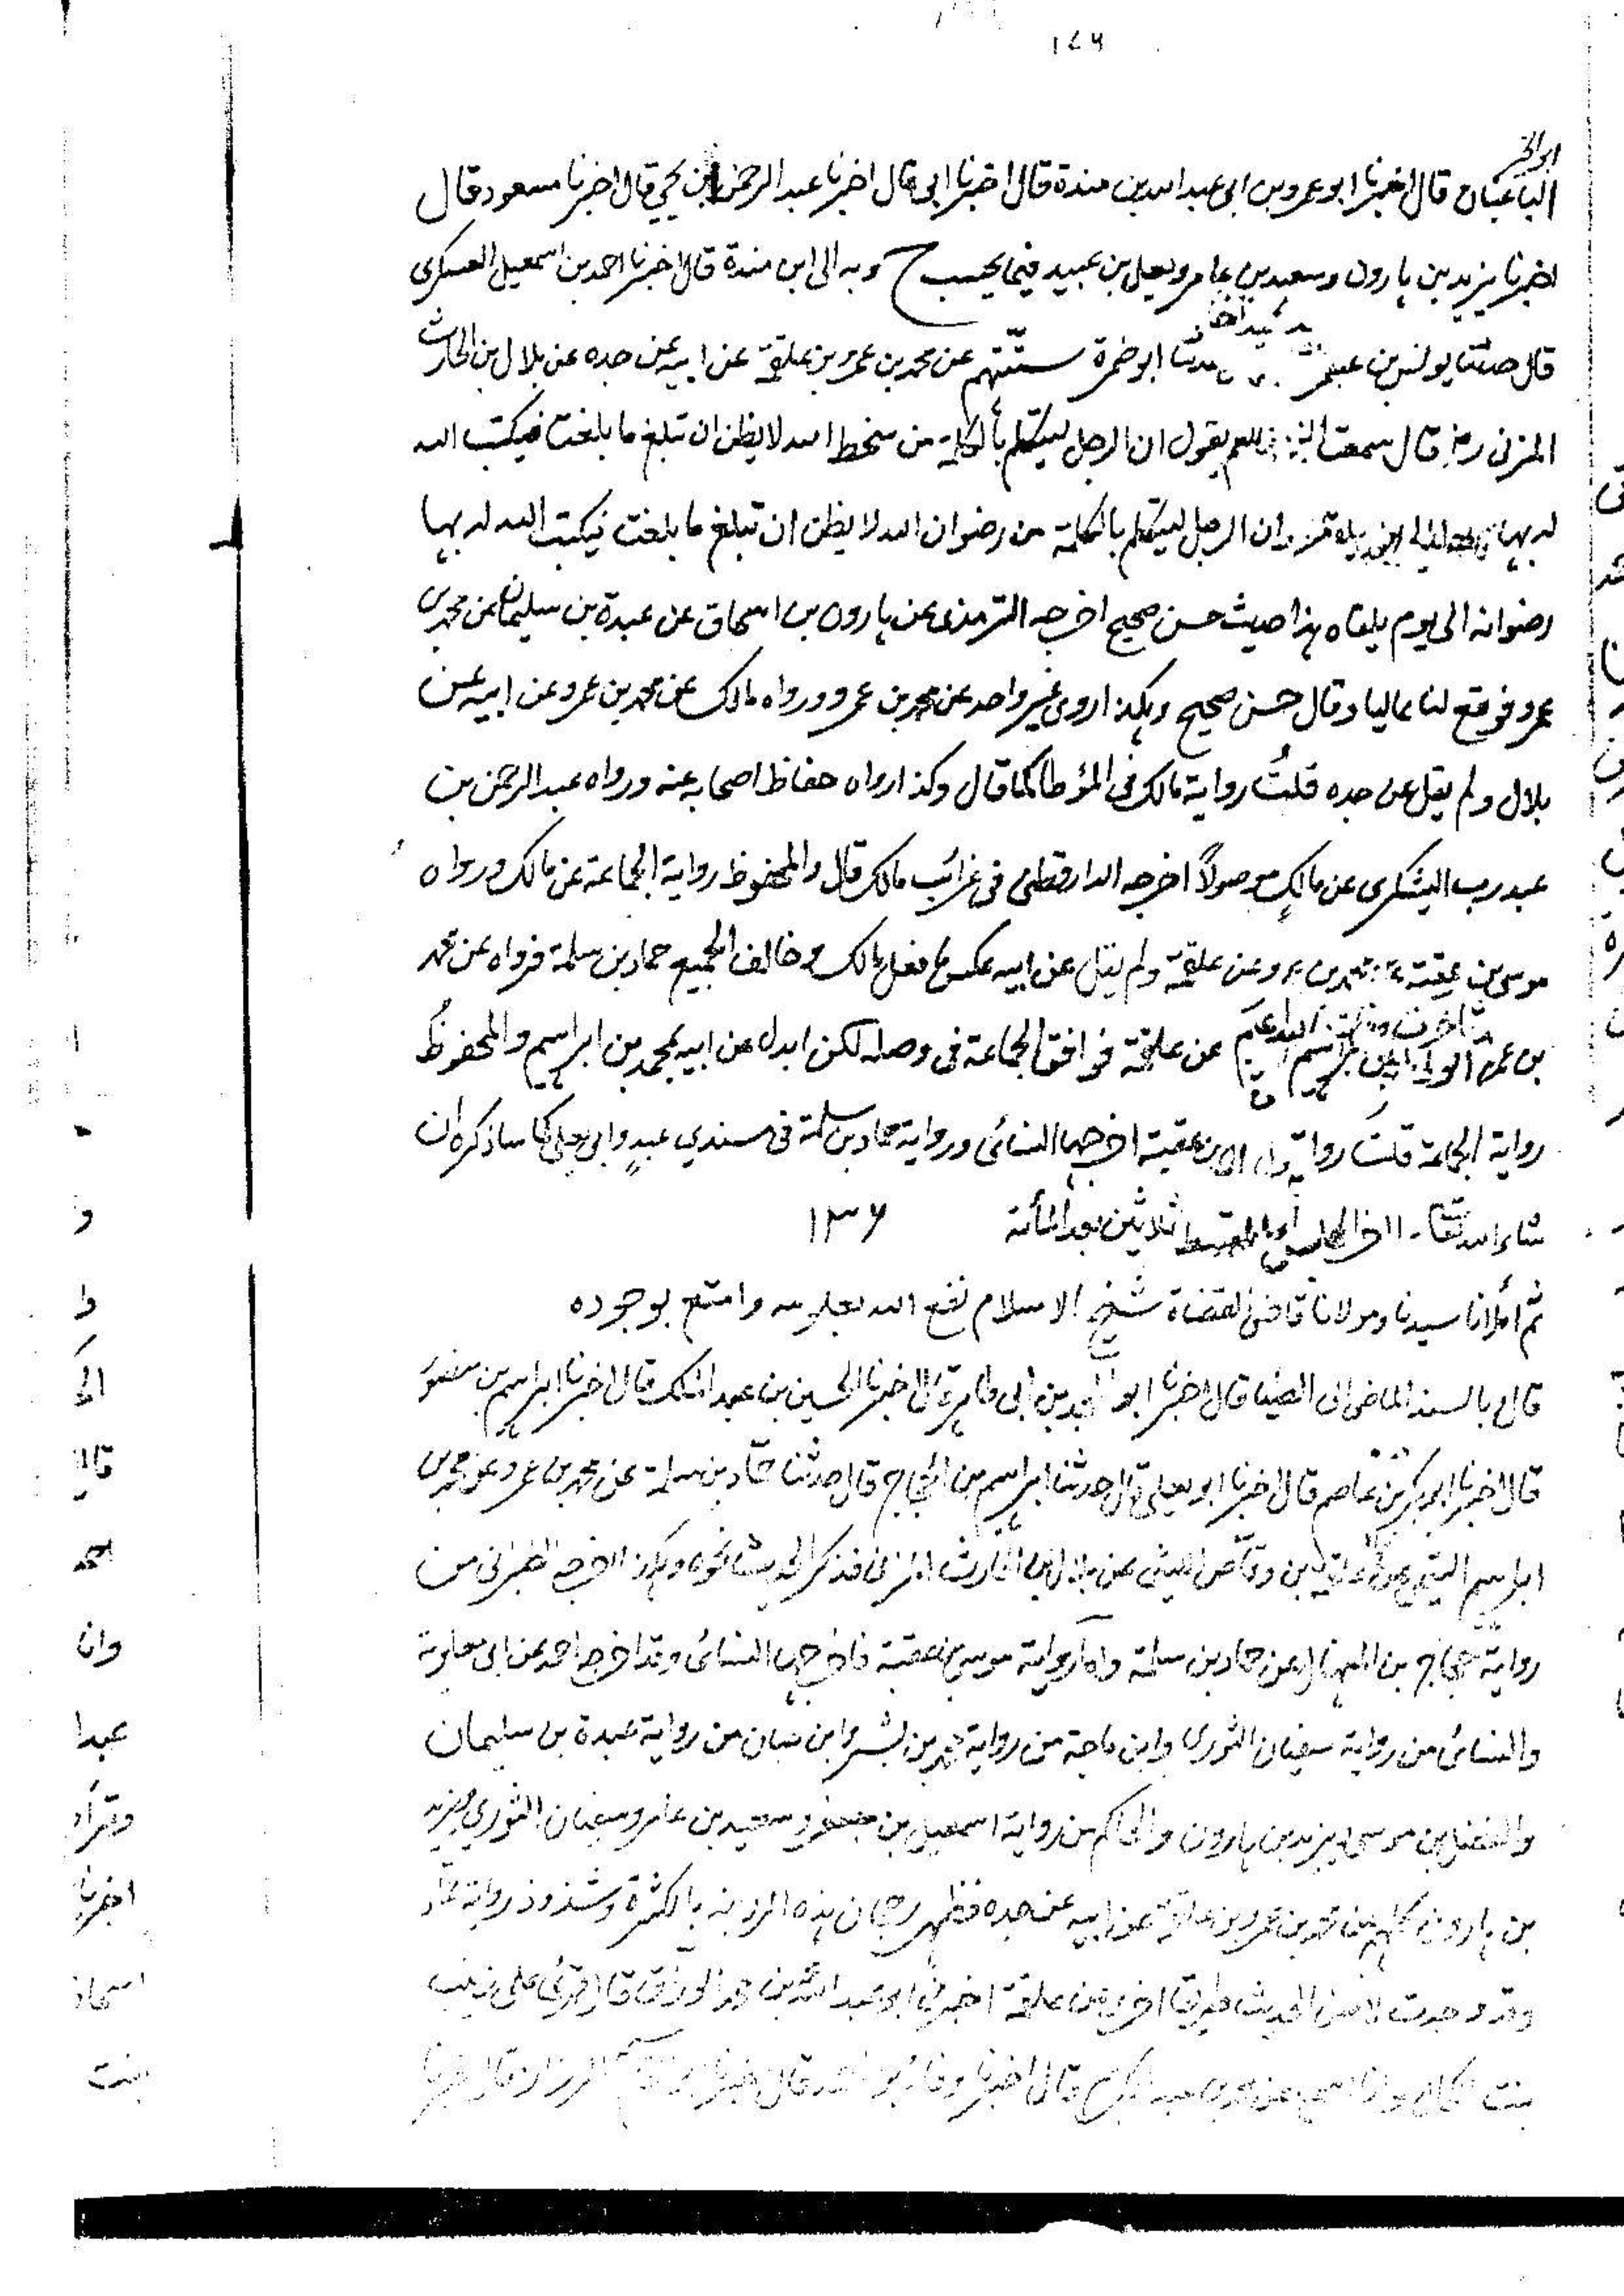 ١٤٦
ابو الخير
الباغبان قال اخبرنا ابو عمرو بن ابى عبد الله بن مندة قال اخبرنا ابى قال اخبرنا عبد الرحمن بن يحيى قال اخبرنا مسعود قال
اخبرنا يزيد بن هارون وسعيد بن عامر ويعلى بن عبيد فيما يحسب ح وبه الى ابن مندة قال اخبرنا احمد بن اسمعيل العسكرى
قال حدثنا يونس بن عبد حدثنا ابو ضمرة ستتهم عن محمد بن عمرو بن علقمة عن ابيه عن جده عن بلال بن الحارث
المزنى رض قال سمعت النبى صلعم يقول ان الرجل ليتكلم بالكلمة من سخط الله لا يظن ان تبلغ ما بلغت فيكتب الله
له بها سخطه الى يوم يلقاه وان الرجل ليتكلم بالكلمة من رضوان الله لا يظن ان تبلغ ما بلغت فيكتب الله له بها
رضوانه الى يوم يلقاه هذا حديث حسن صحيح اخرجه الترمذى عن هارون بن اسحاق عن عبدة بن سليمان عن محمد بن
عمرو فوقع لنا عاليا وقال حسن صحيح وهكذا روى غير واحد عن محمد بن عمرو ورواه مالك عن محمد بن عمرو عن ابيه عن
بلال ولم يقل عن جده قلتُ رواية مالك فى المؤطا كما قال وكذا رواه حفاظ اصحابه عنه ورواه عبد الرحمن بن
عبد رب اليشكرى عن مالك موصولاً اخرجه الدارقطنى فى غرائب مالك قال والمحفوظ رواية الجماعة عن مالك ورواه
موسى بن عقبة عن محمد بن عمرو عن علقمة ولم يقل عن ابيه عكس ما فعل مالك وخالف الجميع حماد بن سلمة فرواه عن محمد
بن عمرو عن محمد بن ابراهيم عن علقمة فوافق الجماعة فى وصله لكن ابدل عن ابيه بمحمد بن ابراهيم والمحفوظ
رواية الجماعة قلت رواية موسى بن عقبة اخرجها النسائى ورواية حماد بن سلمة فى مسندي عبدٍ وابى يعلى كما ساذكره ان
شاء الله تعالى اخر المجلس ثلاثين بعد المأئة ١٣٦
ثم أملانا سيدنا ومولانا قاضى القضاة شيخ الاسلام نفع الله بعلومه وامتع بوجوده
قال بالسند الماضى الى الضياء قال اخبرنا ابو المجد بن ابى طاهر قال اخبرنا الحسين بن عبد الملك قال اخبرنا ابراهيم بن منصور
قال اخبرنا ابو بكر بن عاصم قال اخبرنا ابو يعلى قال حدثنا ابراهيم بن الحجاج قال حدثنا حمّاد بن سلمة عن محمد بن عمرو عن محمد بن
ابراهيم التيمى عن علقمة بن وقاص الليثى عن بلال بن الحارث المزنى فذكر الحديث نحوه وهكذا اخرجه الطبرانى من
رواية حجاج بن المنهال عن حماد بن سلمة واما رواية موسى بن عقبة فاخرجها النسائى وقد اخرجه احمد عن ابى معاوية
والنسائى من رواية سفيان الثورى وابن ماجة من رواية محمد بن بشر وابن حبان من رواية عبدة بن سليمان
والفضل بن موسى ويزيد بن هارون والحاكم من رواية اسمعيل بن جعفر وسعيد بن عامر وسفيان الثوري ويزيد
بن هارون كلهم عن محمد بن عمرو بن علقمة عن ابيه عن جده فظهر رجحان هذه الرواية بالكثرة وشذوذ رواية حماد
وقد وجدت لاصل الحديث طريقا اخرى عن علقمة اخبرنى ابو عبد الله محمد بن محمد الوراق قال قرئ على زينب
بنت الكمال عن عبد قال اخبرنا قال
و
وا
الى
قال
احمد
وان
عبدا
وقرأ
اخبرنا
اسحاق
بنت